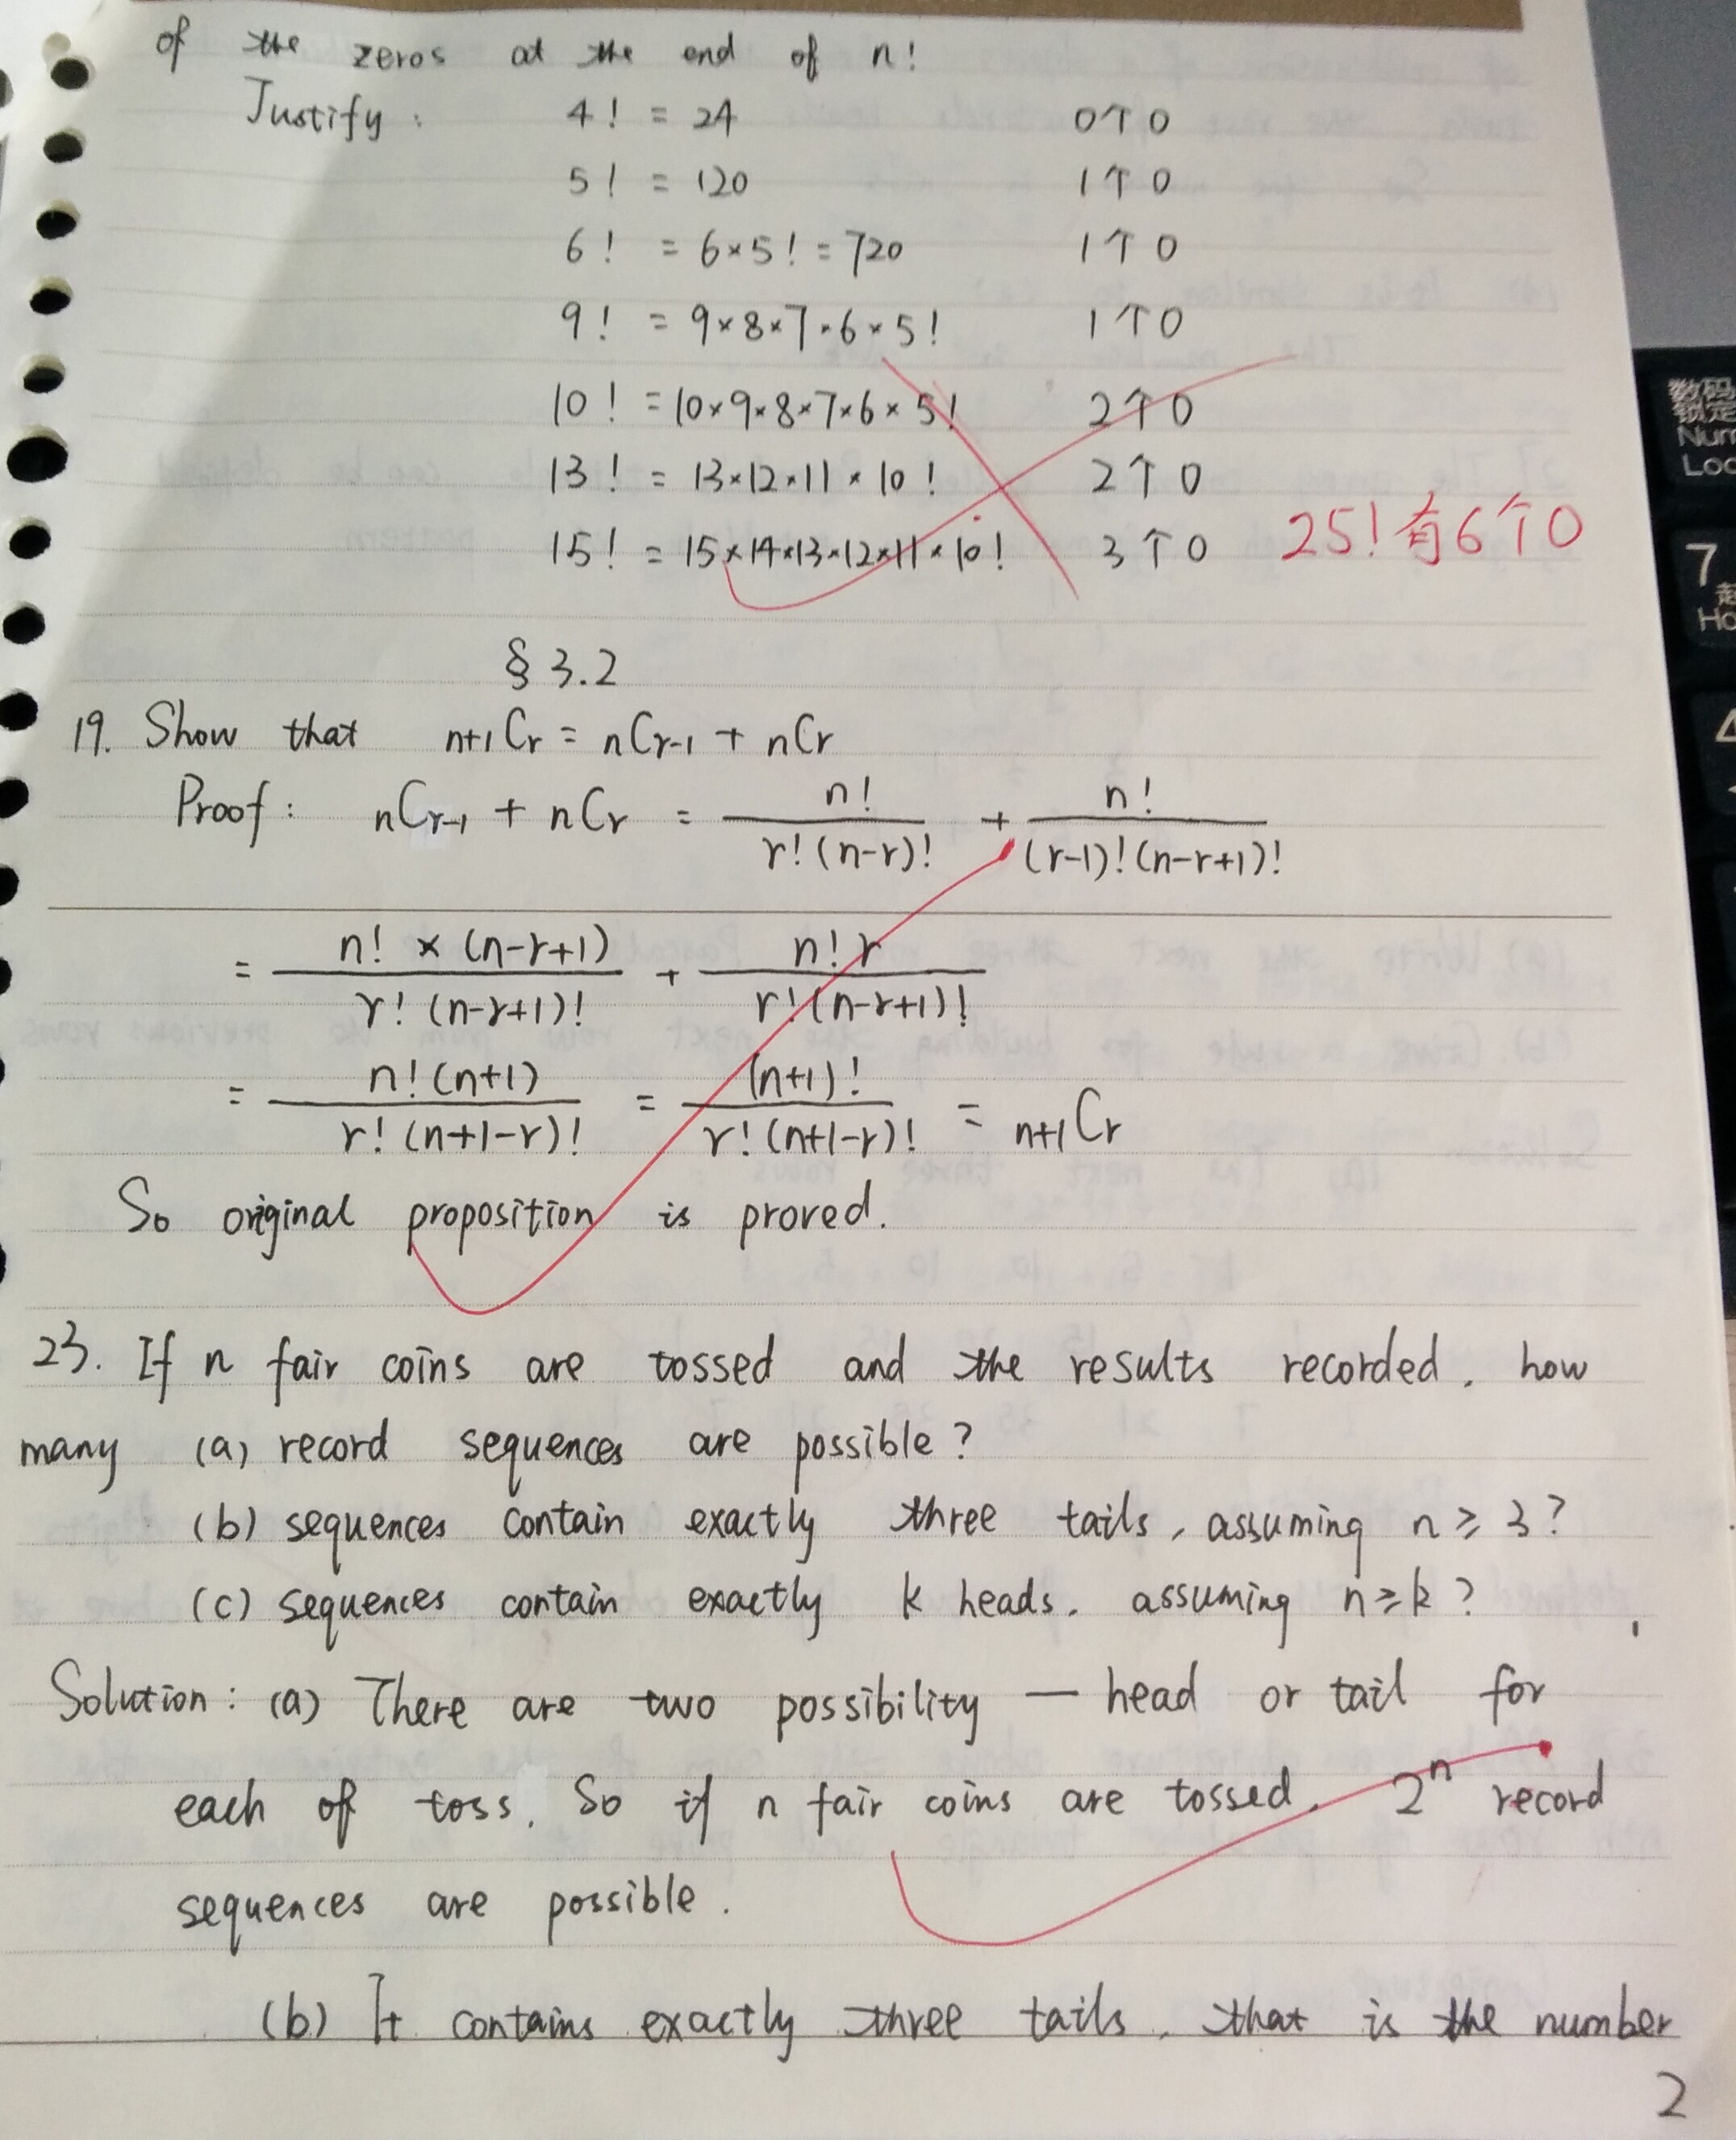 of the zeros at the end of n!
Justify: 4! = 24 0个0
5! = 120 1个0
6! = 6×5! = 720 1个0
9! = 9×8×7×6×5! 1个0
10! = 10×9×8×7×6×5! 2个0
13! = 13×12×11×10! 2个0
15! = 15×14×13×12×11×10! 3个0 25!有6个0
§3.2
19. Show that n+1Cr = nCr-1 + nCr
Proof: nCr-1 + nCr = n!/(r!(n-r)!) + n!/((r-1)!(n-r+1)!)
= n!×(n-r+1)/(r!(n-r+1)!) + n!r/(r!(n-r+1)!)
= n!(n+1)/(r!(n+1-r)!) = (n+1)!/(r!(n+1-r)!) = n+1Cr
So original proposition is proved.
23. If n fair coins are tossed and the results recorded, how
many (a) record sequences are possible?
(b) sequences contain exactly three tails, assuming n ≥ 3?
(c) sequences contain exactly k heads, assuming n ≥ k?
Solution: (a) There are two possibility — head or tail for
each of toss. So if n fair coins are tossed, 2^n record
sequences are possible.
(b) It contains exactly three tails, that is the number
2
数码
锁定
Num
Loc
7
Ho
4